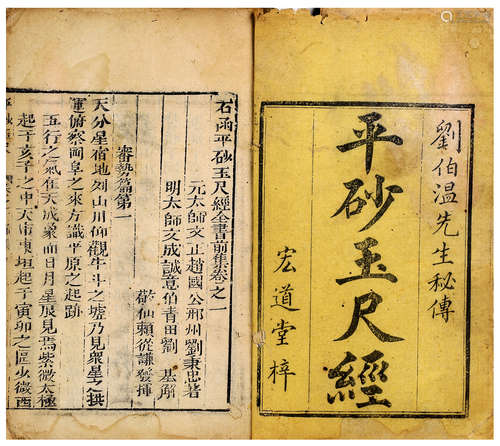 劉伯温先生秘傳
平砂玉尺經
宏道堂梓
石函平砂玉尺經全書前集卷之一
元太師文正趙國公邢州劉秉忠著
明太師文成誠意伯青田劉基解
賴從謙發揮
審勢篇第一
天分星宿地列山川仰觀牛斗之墟乃見衆星之拱
運俯察岡阜之來方識平原之起跡
五行之氣在天成象而日月星辰見焉紫微太極
起于亥子之中天市東垣起于寅卯之區少微西